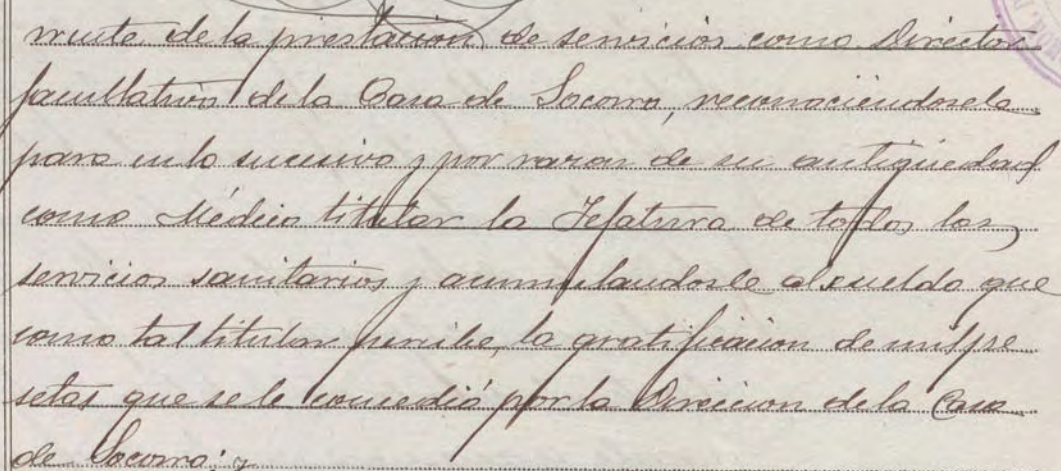 mente de la prestación de servicios como Director
facultativo de la Casa de Socorro, reconociéndosele
para en lo sucesivo y por razon de su antigüedad
como Médico titular la Jefatura de todos los
servicios sanitarios y acumulandosele al sueldo que
como tal titular percibe, la gratificacion de mil pe
setas que se le concedió por la Direccion de la Casa
de Socorro; y